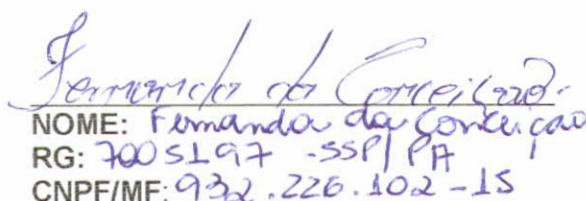 Fernanda da Conceição
NOME: Fernanda da Conceição
RG: 7005197 -SSP/PA
CNPF/MF: 932.226.102-15